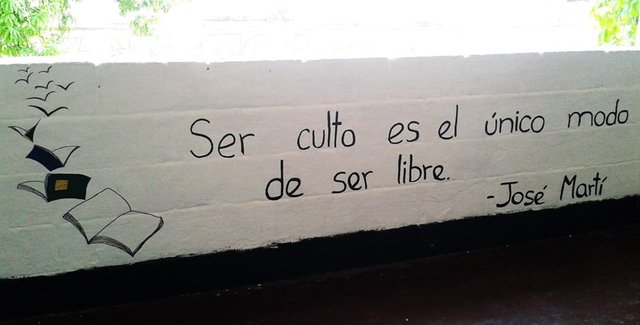 Ser culto es el único modo
de ser libre.
-José Martí